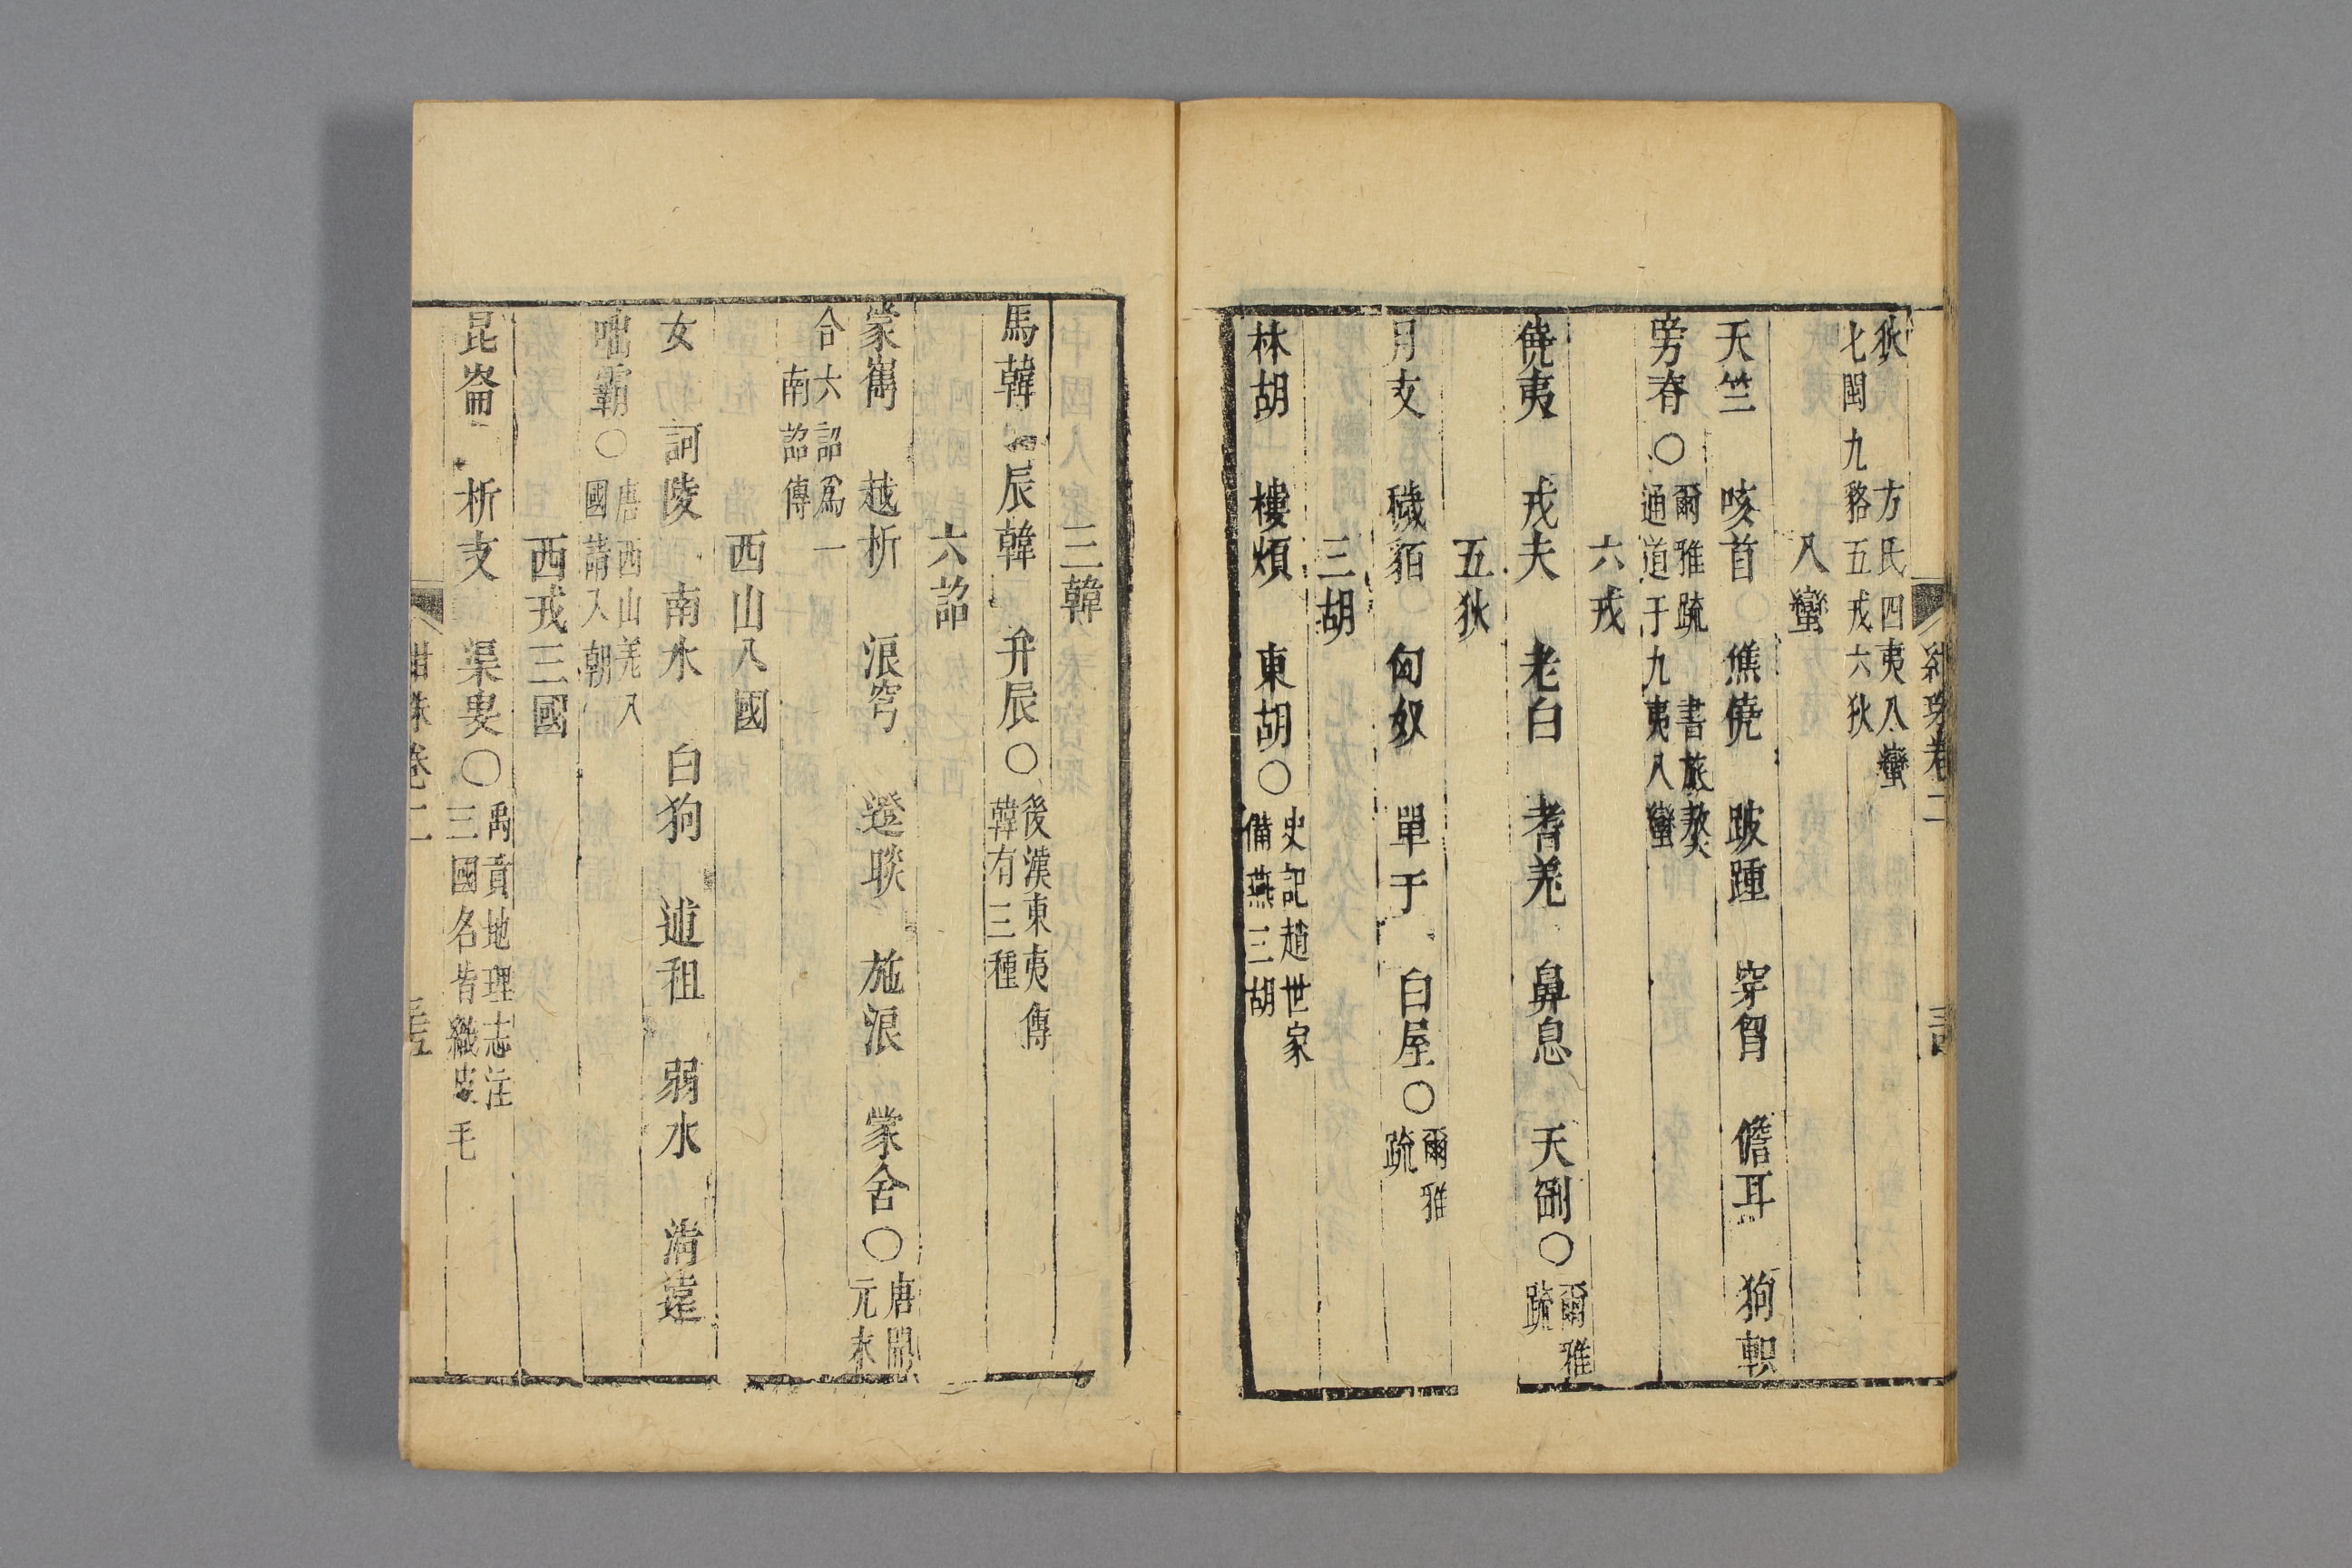 紺珠卷二
狄　方氏四夷八蠻
七閩九貉五戎六狄
八蠻
天竺　咳首　僬僥　跛踵　穿胷　儋耳　狗軹
旁脊○爾雅疏　書旅獒
通道于九夷八蠻
六戎
僥夷　戎夫　老白　耆羌　鼻息　天剛○爾雅
疏
五狄
月支　穢貊　匈奴　單于　白屋○爾雅
疏
三胡
林胡　樓煩　東胡○史記趙世家
備燕三胡
三韓
馬韓　辰韓　弁辰○後漢東夷傳
韓有三種
六詔
蒙嶲　越析　浪穹　邆睒　施浪　蒙舍○唐開
元末
合六詔爲一
南詔傳
西山八國
女　訶陵　南水　白狗　逋租　弱水　清遠
咄霸○唐西山羌八
國請入朝
西戎三國
昆崙　析支　渠叟○禹貢地理志注
三國名皆織皮毛
紺珠卷二